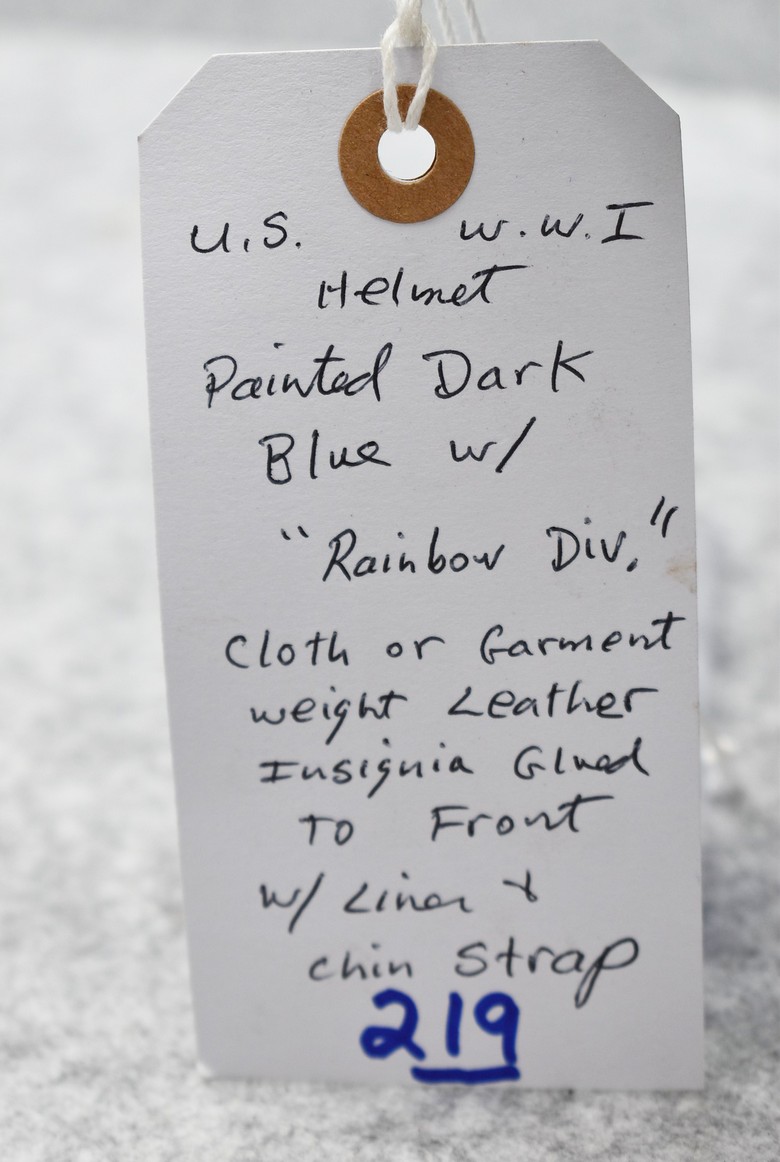 U.S. W.W.I
Helmet
Painted Dark
Blue w/
"Rainbow Div."
Cloth or Garment
weight Leather
Insignia Glued
To Front
w/ Liner &
chin strap
219